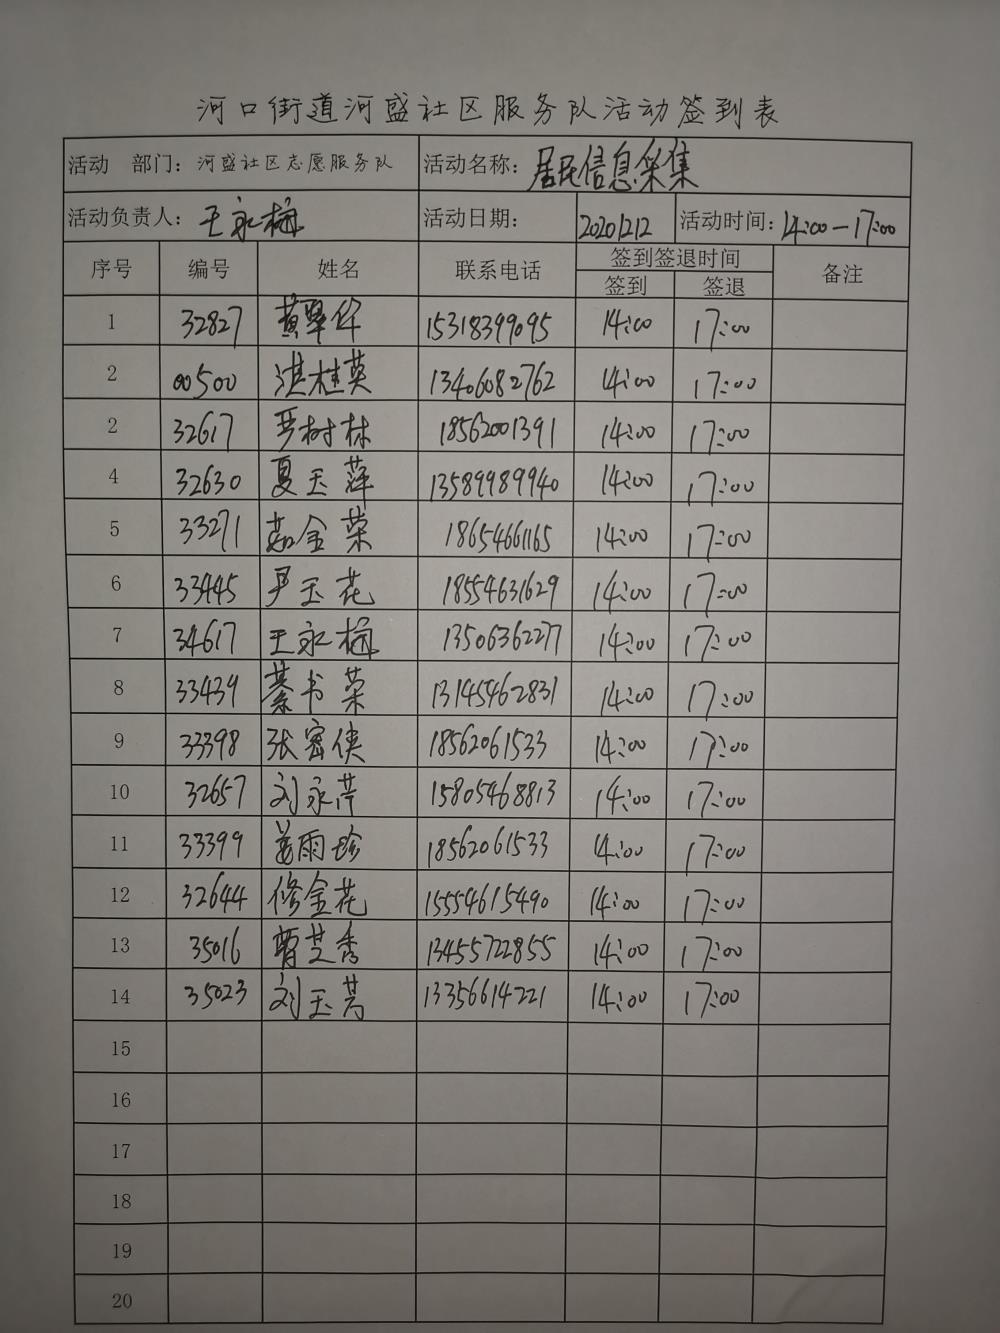 河口街道河盛社区服务队活动签到表
活动 部门: 河盛社区志愿服务队 活动名称: 居民信息采集
活动负责人: 王永梅 活动日期: 20201212 活动时间: 14:00-17:00
序号 编号 姓名 联系电话 签到签退时间 备注
签到 签退
1 32827 黄翠华 15318399095 14:00 17:00
2 00500 淇桂英 13406082762 14:00 17:00
2 32617 罗树林 18562001391 14:00 17:00
4 32630 夏玉萍 13589989940 14:00 17:00
5 33271 茹金荣 18654661165 14:00 17:00
6 33445 尹玉花 18554631629 14:00 17:00
7 34617 王永梅 13506362277 14:00 17:00
8 33439 綦书荣 13145462831 14:00 17:00
9 33398 张密侠 18562061533 14:00 17:00
10 32657 刘永芹 15805468813 14:00 17:00
11 33399 姜雨珍 18562061533 14:00 17:00
12 32644 修金花 15554615490 14:00 17:00
13 35016 曹芝秀 13455722855 14:00 17:00
14 35023 刘玉 13356614221 14:00 17:00
15
16
17
18
19
20